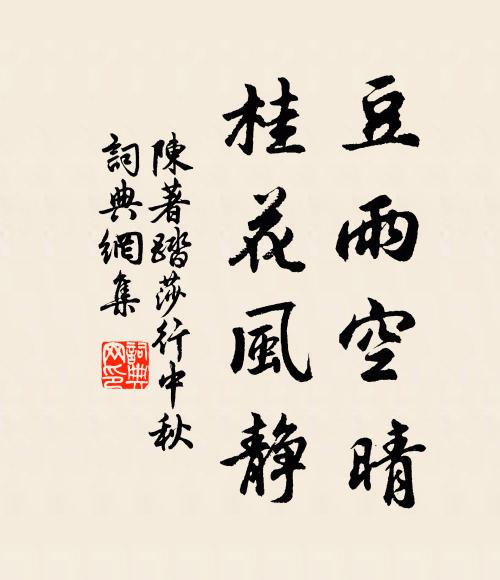 豆雨空晴
桂花風靜
陳著踏莎行中秋
詞典網集
詞典網印